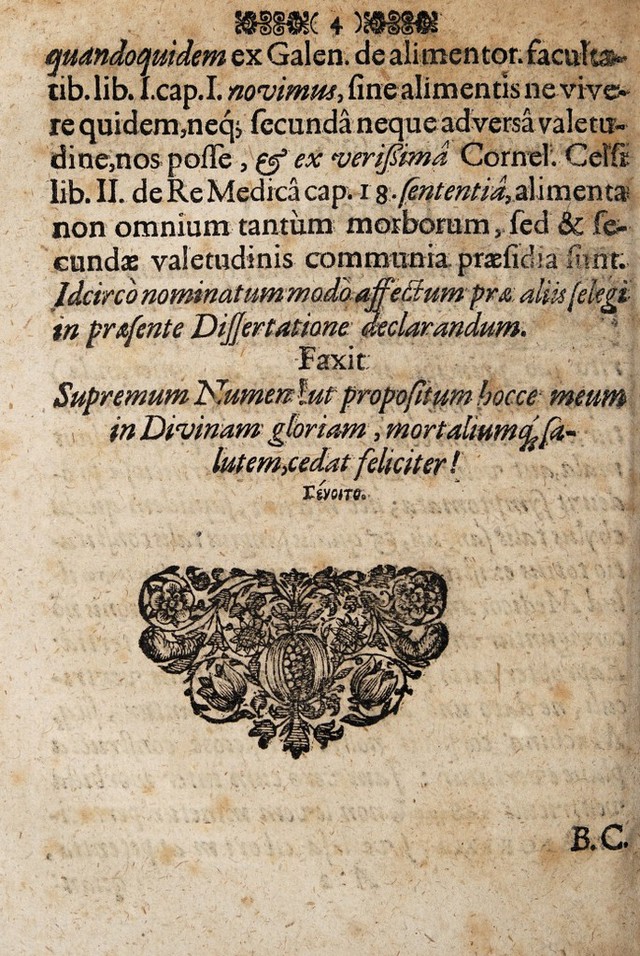 ( 4 )
quandoquidem ex Galen. de alimentor. faculta-
tib. lib. I. cap. I. novimus, ſine alimentis ne vive-
re quidem, neq; ſecundâ neque adversâ valetu-
dine, nos poſſe, & ex verißimâ Cornel. Celſi
lib. II. de Re Medicâ cap. 18. ſententiâ, alimenta
non omnium tantùm morborum, ſed & ſe-
cundæ valetudinis communia præſidia ſunt.
Idcircò nominatum modò affectum præ aliis ſelegi
in præſente Diſſertatione declarandum.
Faxit
Supremum Numen ut propoſitum hocce meum
in Divinam gloriam, mortaliumq́; ſa-
lutem, cedat feliciter!
Γένοιτο.
B. C.